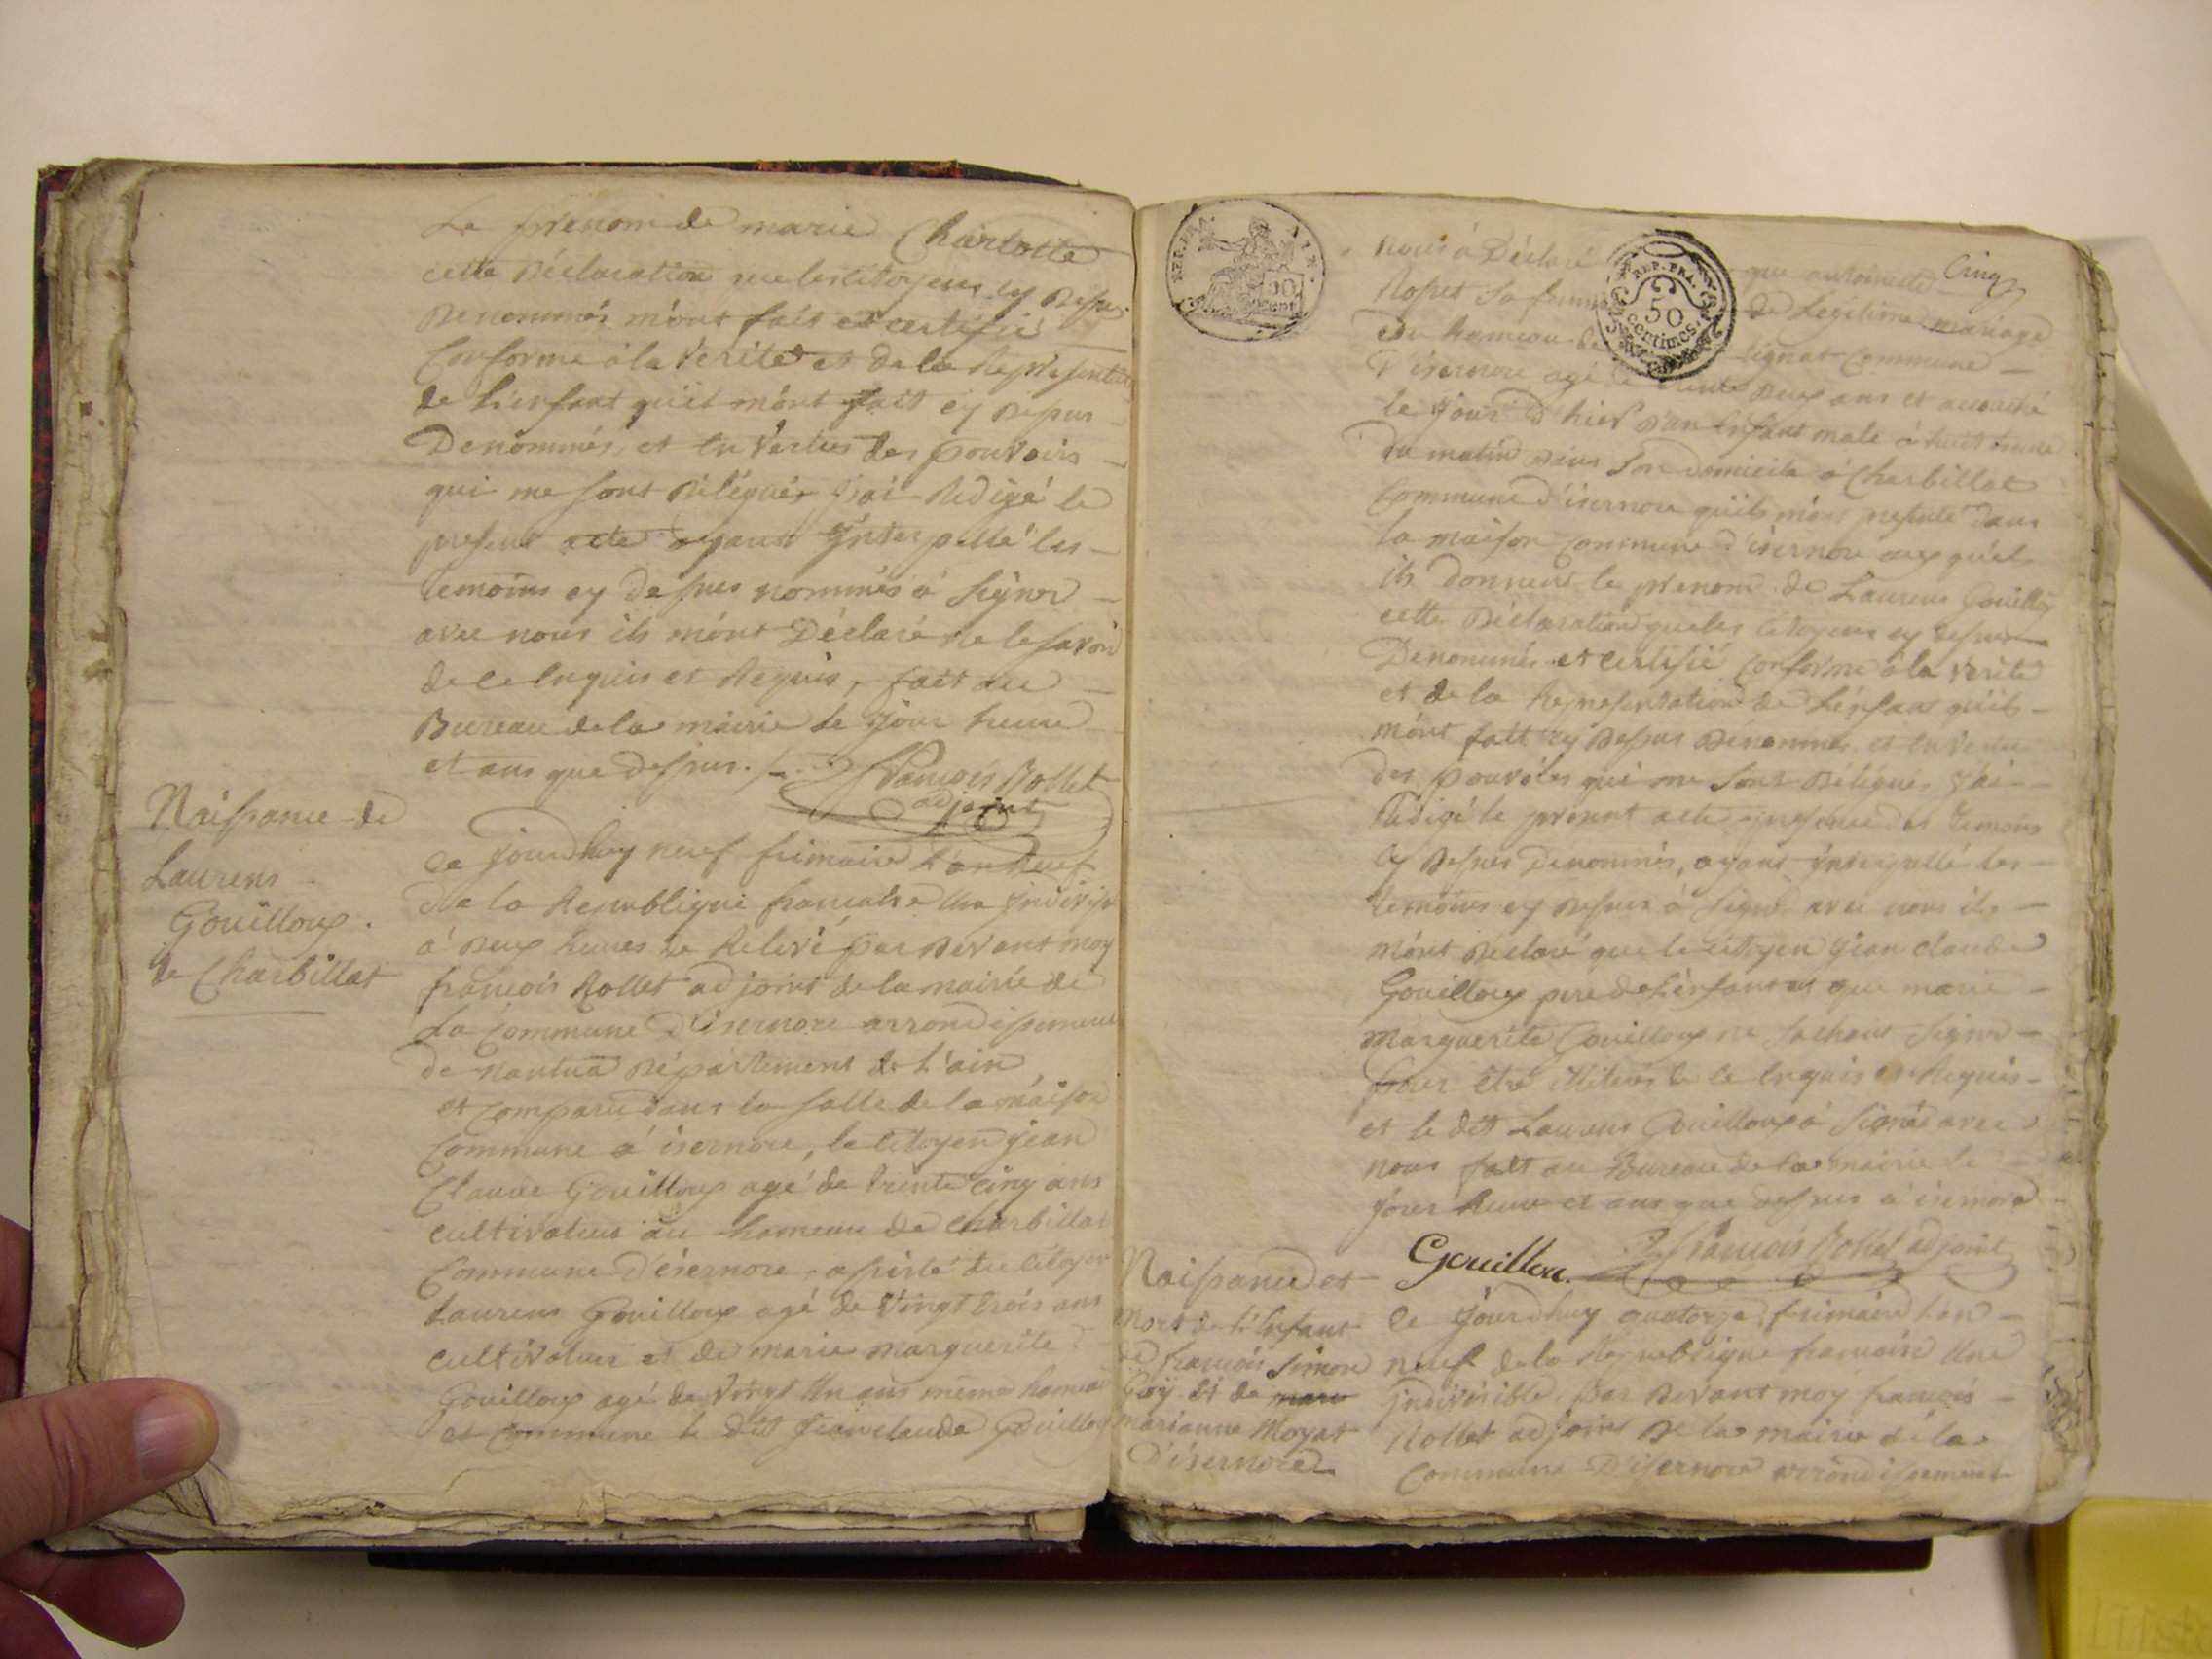 Le prenom de marie Charlotte
cette Déclaration que les Citoyens cy Dessus
Denommés m'ont fait et certifié
Conforme à la Verité et de la Representa
de L'enfant qu'il m'ont fait cy Dessus
Denommés, et En Vertus des pouvoirs
qui me sont Délégués J'ai Redigé le
present acte ayant Interpellé les
temoins cy dessus nommés à Signer
avec nous ils m'ont Déclaré ne le savoir
de ce Enquis et Requis, fait au
Bureau de la mairie le Jour heure
et ans que dessus.
François Rollet
adjoint
Naissance de
Laurens
Gouilloux.
de Charbillat
Ce Jourdhuy neuf frimaire L'an neuf
de la Republique francaise Une Indivisi
à Deux heures de Relevé par Devant moy
francois Rollet adjoint de la mairie de
La Commune D'isernore arrondissement
de nantua Département de L'ain,
et Comparu dans la Salle de la maison
Commune à isernore, le Citoyen Jean
Claude Gouilloux agé de trente cinq ans
cultivateur au hameau de Charbillat
Commune D'isernore, assisté du Citoyen
Laurens Gouilloux agé de Vingt trois ans
cultivateur et de marie marguerite
Gouilloux agé de Vingt Un ans meme hameau
et Commune le dit Jean claude Gouilloux
REP. FRA. AIN.
REP. FRA.
50
centimes
Cinq
nous à Déclaré que antoinette
Rosset Sa femme de Légitime mariage
du hameau de lignat Commune
D'isernore agé de trente Deux ans et accouché
le Jour d'hier D'un Enfant male à huit heure
du matin Dans Son domicile à Charbillat
Commune d'isernore qu'ils m'ont presenté dans
la maison Commune d'isernore auquel
ils donnent le prenom de Laurens Gouilloux
cette Déclaration que les Citoyens cy dessus
Denommés et certifié Conforme à la Verité
et de la Representation de L'enfant qu'ils
m'ont fait cy Dessus Denommés et En Vertu
des pouvoirs qui me Sont Délégués J'ai
Redigé le present acte en presence des temoins
cy Dessus Denommés, ayant interpellé les
temoins cy Dessus à Signer avec nous ils
m'ont Déclaré que le Citoyen Jean claude
Gouilloux pere de L'enfant et que marie
Marguerite Gouilloux ne Sachant Signer
pour être illiteres de ce Enquis et Requis
et le dit Laurens Gouilloux à Signé avec
nous fait au Bureau de la mairie le
Jour heure et ans que dessus à isernore
Gouillou. François Rollet adjoint
Naissance et
Mort de L'Enfant
de francois Simon
Goÿ Et de marie
marianne Moyat
D'isernore
Ce Jourdhuy quatorze frimaire L'an
neuf de la Republique francaise Une
Indivisible, Par Devant moy francois
Rollet adjoint De la mairie de la
Commune D'isernore arrondissement